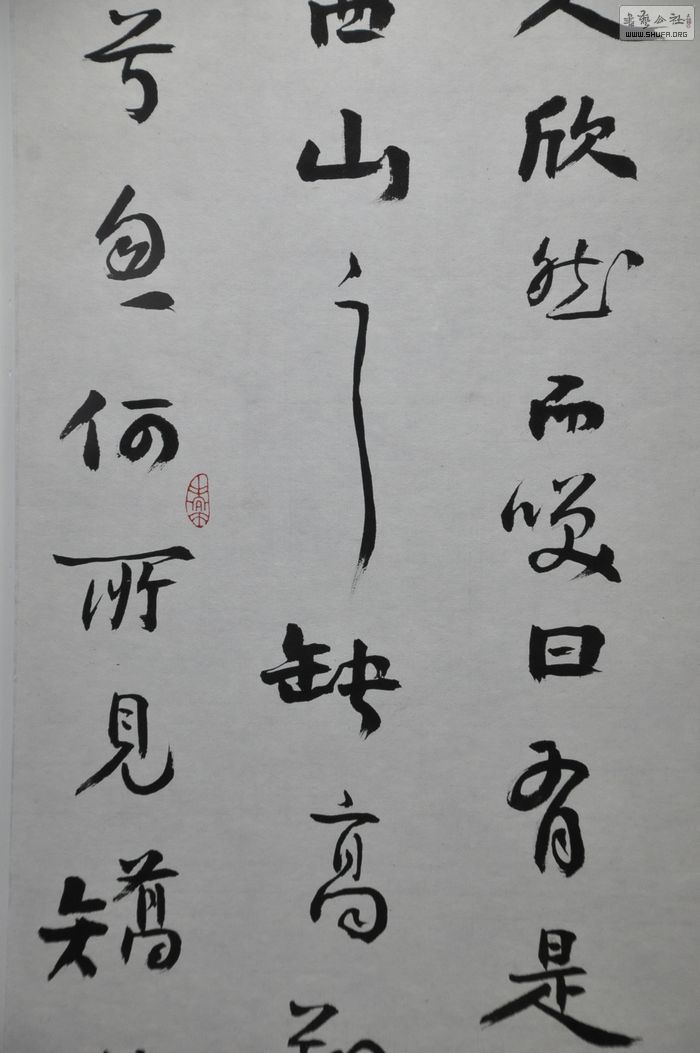 書藝公社
WWW.SHUFA.ORG
人欣然而咲曰有是
西山之缺高翔
兮忽何所見矯